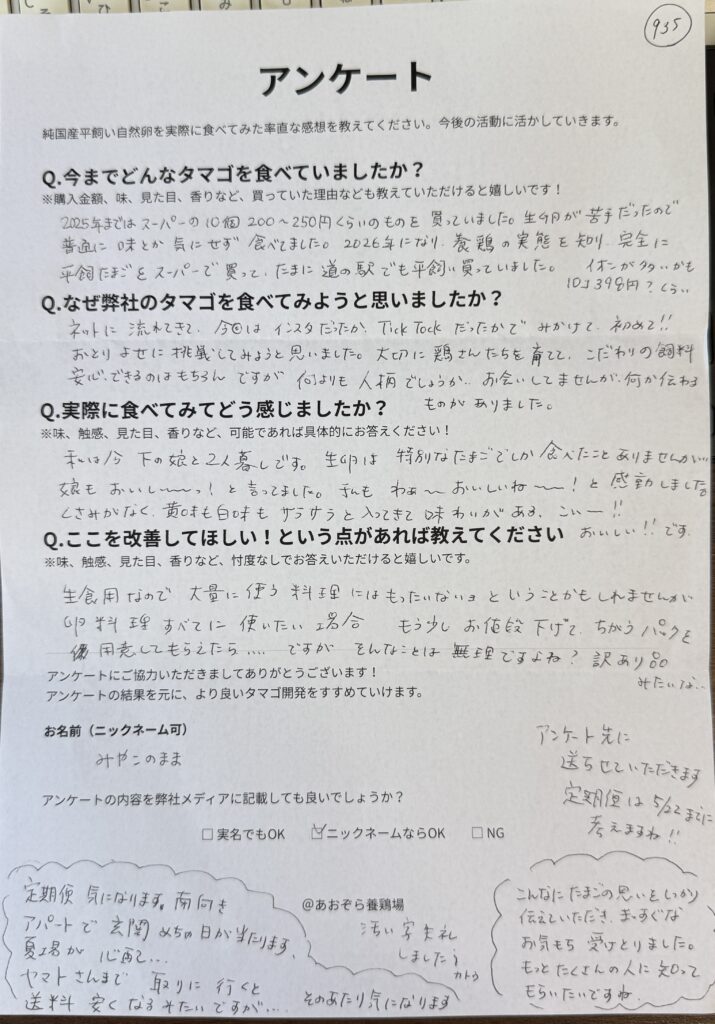 935
アンケート
純国産平飼い自然卵を実際に食べてみた率直な感想を教えてください。今後の活動に活かしていきます。
Q.今までどんなタマゴを食べていましたか？
※購入金額、味、見た目、香りなど、買っていた理由なども教えていただけると嬉しいです！
2025年まではスーパーの10個 200～250円くらいのものを買っていました。生卵が苦手だったので
普通に味とか気にせず食べてました。2026年になり、養鶏の実態を知り、完全に
平飼たまごをスーパーで買って、たまに道の駅でも平飼い買っていました。
イオンが多いかも
10コ398円？くらい
Q.なぜ弊社のタマゴを食べてみようと思いましたか？
ネットに流れてきて、今回はインスタだったか、TickTockだったかでみかけて、初めて!!
おとりよせに挑戦してみようと思いました。大切に鶏さんたちを育てて、こだわりの飼料
安心できるのはもちろんですが何よりも人柄でしょうか、お会いしてませんが、何か伝わる
ものがありました。
Q.実際に食べてみてどう感じましたか？
※味、触感、見た目、香りなど、可能であれば具体的にお答えください！
私は今下の娘と2人暮しです。生卵は特別なたまごでしか食べたことありませんが…
娘もおいし～～っ！と言ってました。私も わぁ～おいしいね～～！と感動しました
くさみがなく、黄味も白味もサラサラと入ってきて味わいがある、こいー!!
おいしい!!です。
Q.ここを改善してほしい！という点があれば教えてください
※味、触感、見た目、香りなど、忖度なしでお答えいただけると嬉しいです。
生食用なので大量に使う料理にはもったいないよということかもしれませんが
卵料理すべてに使いたい場合 もう少しお値段下げて、ちがうパックを
用意してもらえたら…. ですがそんなことは無理ですよね？訳あり品
みたいな…
アンケートにご協力いただきましてありがとうございます！
アンケートの結果を元に、より良いタマゴ開発をすすめていけます。
お名前（ニックネーム可）
みやこのまま
アンケート先に
送らせていただきます
定期便は5/22までに
考えますね!!
アンケートの内容を弊社メディアに記載しても良いでしょうか？
□実名でもOK ☑ニックネームならOK □NG
定期便 気になります。南向き
アパートで玄関めちゃ日が当たります、
夏場が心配で…
ヤマトさんまで 取りに行くと
送料安くなるみたいですが…. そのあたり気になります
@あおぞら養鶏場
汚い字失礼
しました
カトウ
こんなにたまごの思いをしっかり
伝えていただき、まっすぐな
お気もち受けとりました。
もっとたくさんの人に知って
もらいたいですね